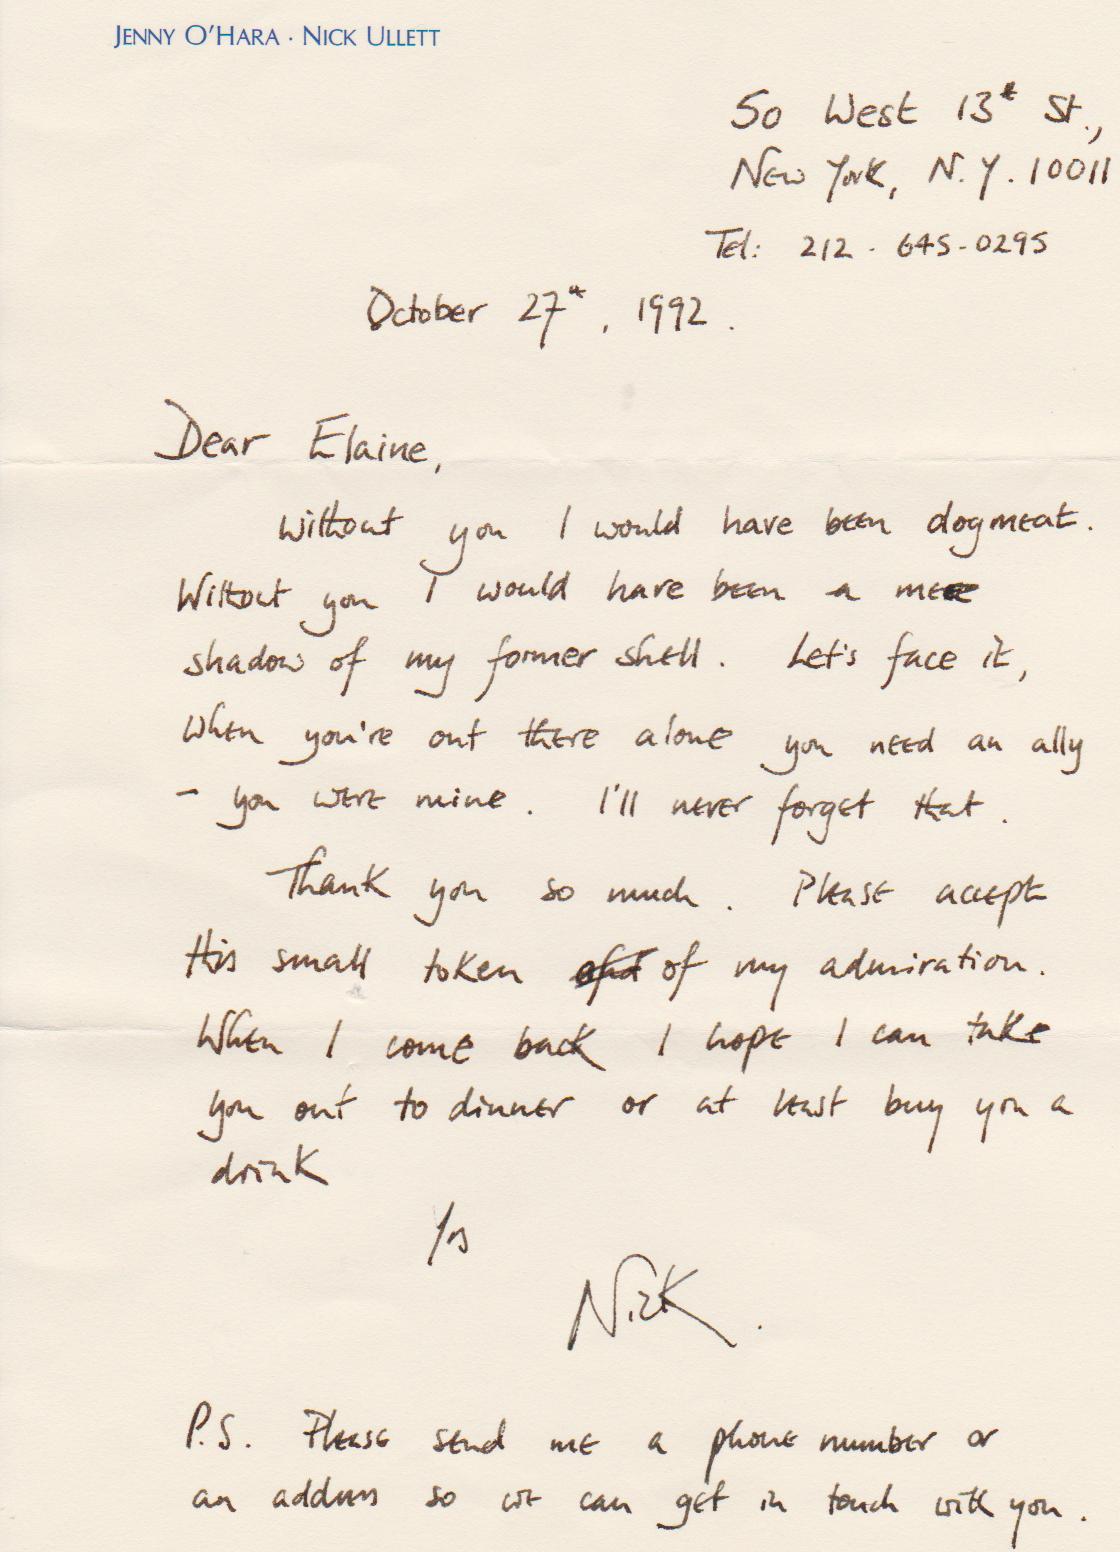 JENNY O'HARA · NICK ULLETT
50 West 13th St.,
New York, N.Y. 10011
Tel: 212 - 645-0295
October 27th, 1992.
Dear Elaine,
Without you I would have been dogmeat.
Without you I would have been a mere
shadow of my former shell. Let's face it,
when you're out there alone you need an ally
- you were mine. I'll never forget that.
Thank you so much. Please accept
this small token of my admiration.
When I come back I hope I can take
you out to dinner or at least buy you a
drink
Yrs
Nick.
P.S. Please send me a phone number or
an address so we can get in touch with you.